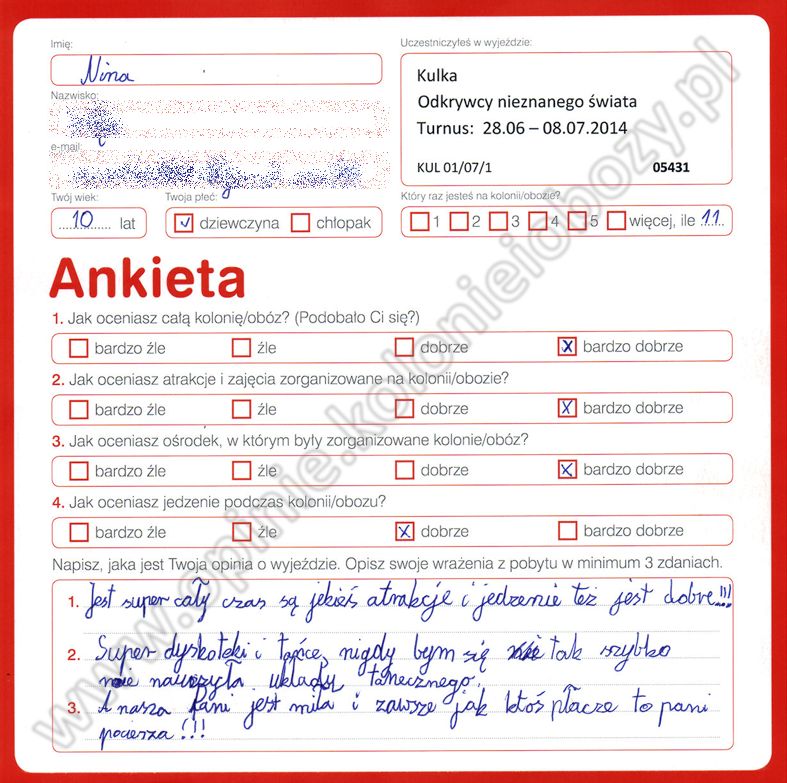 Imię:
Nina
Nazwisko:
e-mail:
Twój wiek:
10 lat
Twoja płeć:
dziewczyna chłopak
Uczestniczyłeś w wyjeździe:
Kulka
Odkrywcy nieznanego świata
Turnus: 28.06 – 08.07.2014
KUL 01/07/1 05431
Który raz jesteś na kolonii/obozie?
1 2 3 4 5 więcej, ile 11
Ankieta
1. Jak oceniasz całą kolonię/obóz? (Podobało Ci się?)
bardzo źle źle dobrze x bardzo dobrze
2. Jak oceniasz atrakcje i zajęcia zorganizowane na kolonii/obozie?
bardzo źle źle dobrze x bardzo dobrze
3. Jak oceniasz ośrodek, w którym były zorganizowane kolonie/obóz?
bardzo źle źle dobrze x bardzo dobrze
4. Jak oceniasz jedzenie podczas kolonii/obozu?
bardzo źle źle x dobrze bardzo dobrze
Napisz, jaka jest Twoja opinia o wyjeździe. Opisz swoje wrażenia z pobytu w minimum 3 zdaniach.
1. Jest super cały czas są jekieś atrakcje i jedzenie też jest dobre!!!
2. Super dyskoteki i tańce, nigdy bym się tak szybko
nie nauczyła układy tanecznego.
3. A nasza Pani jest miła i zawsze jak ktoś płacze to pani
pociesza!!!
www.opinie.kolonieiobozy.pl